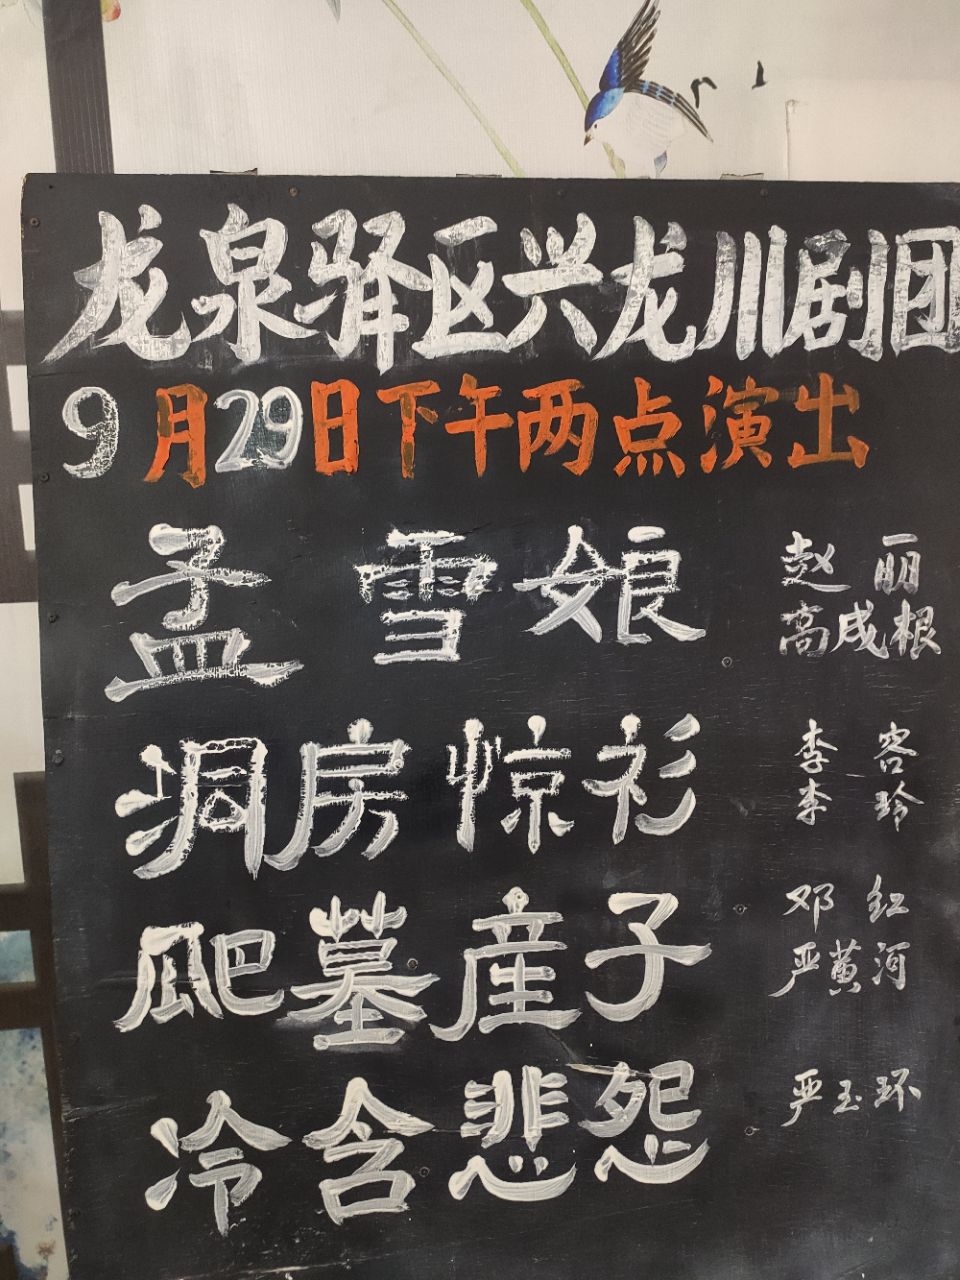 龙泉驿区兴龙川剧团
9月29日下午两点演出
孟雪娘 赵丽
高成根
洞房惊衫 李容
李玲
爬墓産子 邓红
严黄河
冷含悲怨 严玉环